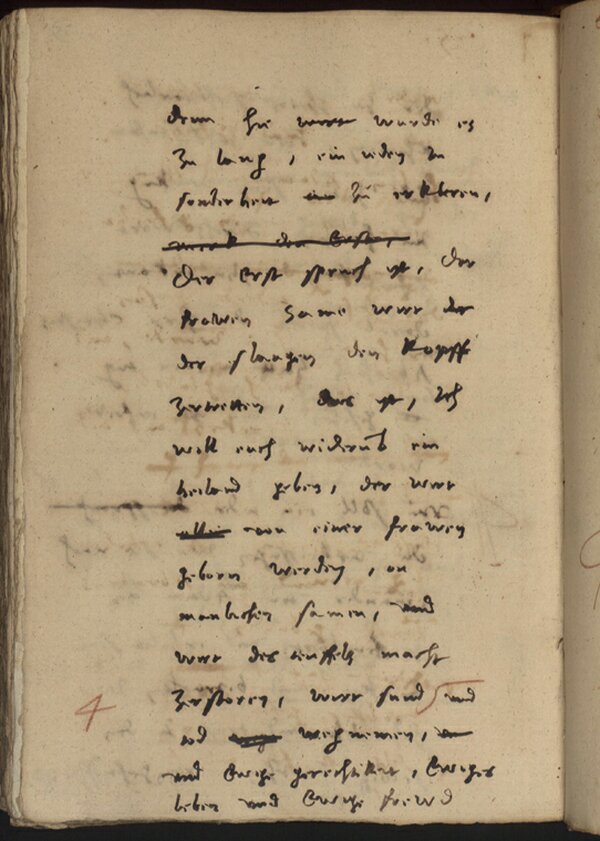 denn hie wurde es
zu lang, ein jeden in
sonderheit zu erkleren,
merk den Ersten,
Der Erst spruch yst, Der
frawen Same wirt der
der slangen den Kopff
zertretten, das yst, Ich
will euch widerumb ein
heiland geben, der wirt
allein von einer frawen
geborn werden, on
manlichen samen, und
wirt des teuffels macht
zerstoren, wirt sund und
4
tod wegnemen,
und Ewige gerechtikeit, Ewiges
leben und Ewige frewd